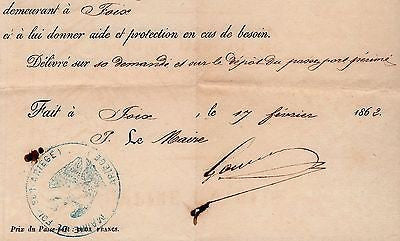 demeurant à Foix
et à lui donner aide et protection en cas de besoin.
Délivré sur sa demande et sur le dépôt du passe port périmé
Fait à Foix, le 17 février 1862
Le Maire
MAIRIE DE FOIX (ARIÈGE)
Prix du Passe-port : DEUX FRANCS.